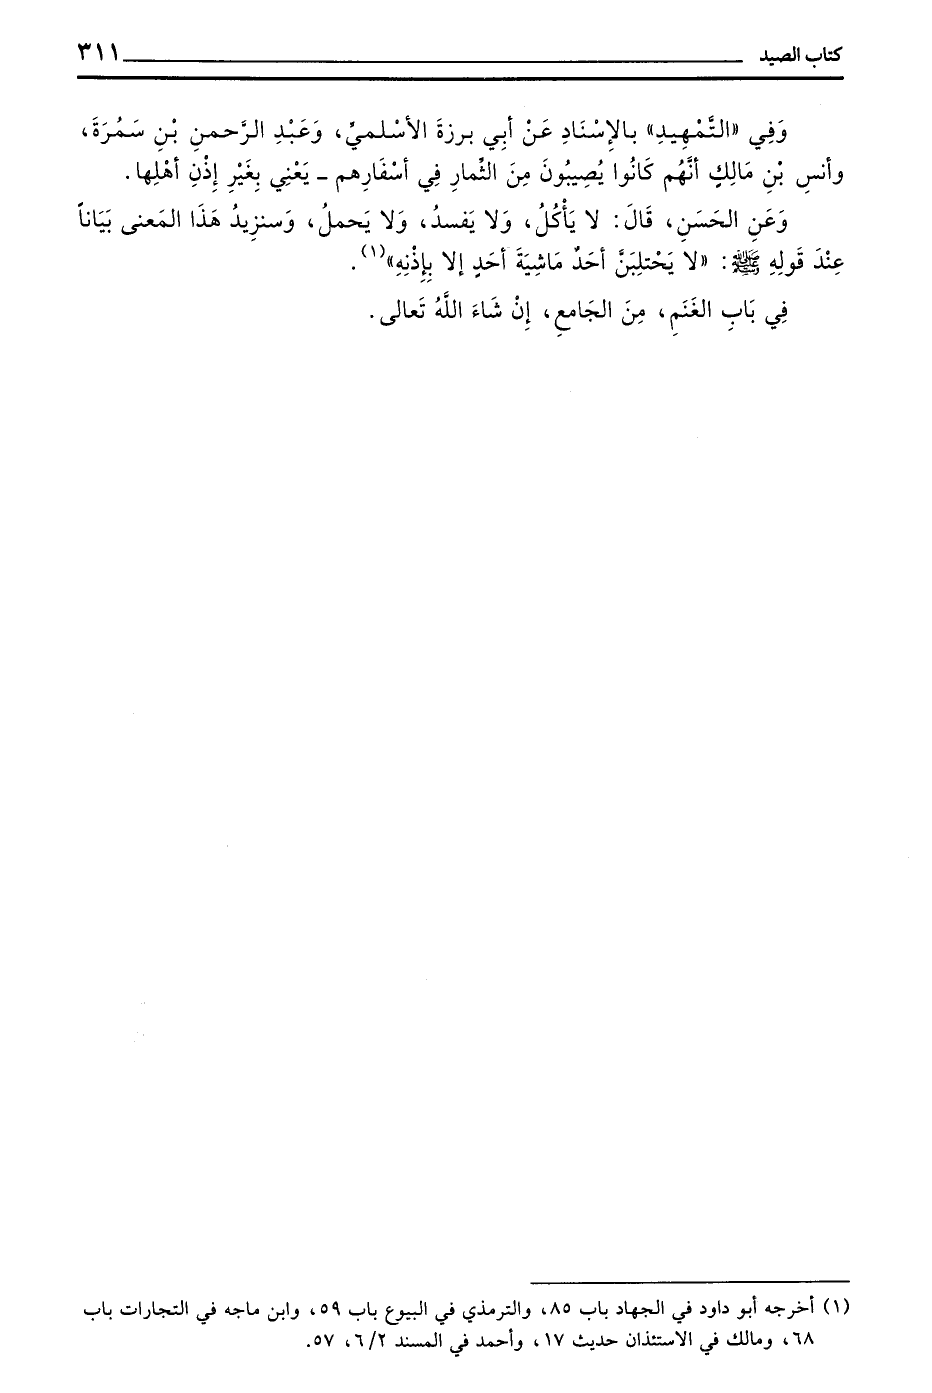 كتاب الصيد ٣١١
وَفِي «التَّمْهِيدِ» بالإِسْنَادِ عَنْ أبِي برزةَ الأسْلميِّ، وَعَبْدِ الرَّحمنِ بْنِ سَمُرَةَ،
وأنسِ بْنِ مَالِكٍ أنَّهُم كَانُوا يُصِيبُونَ مِنَ الثِّمارِ فِي أسْفَارِهم ـ يَعْنِي بِغَيْرِ إذْنِ أهْلِها.
وَعَنِ الحَسَنِ، قَالَ: لا يَأْكُلُ، وَلا يَفسدُ، وَلا يَحملُ، وَسنزِيدُ هَذَا المَعنى بَيَاناً
عِنْدَ قَولِهِ ﷺ: «لا يَحْتلِبَنَّ أحَدٌ مَاشِيَةَ أحَدٍ إلا بِإِذْنِهِ»(١).
فِي بَابِ الغَنَمِ، مِنَ الجَامعِ، إنْ شَاءَ اللَّهُ تَعالى.
(١) أخرجه أبو داود في الجهاد باب ٨٥، والترمذي في البيوع باب ٥٩، وابن ماجه في التجارات باب
٦٨، ومالك في الاستئذان حديث ١٧، وأحمد في المسند ٦/٢، ٥٧.